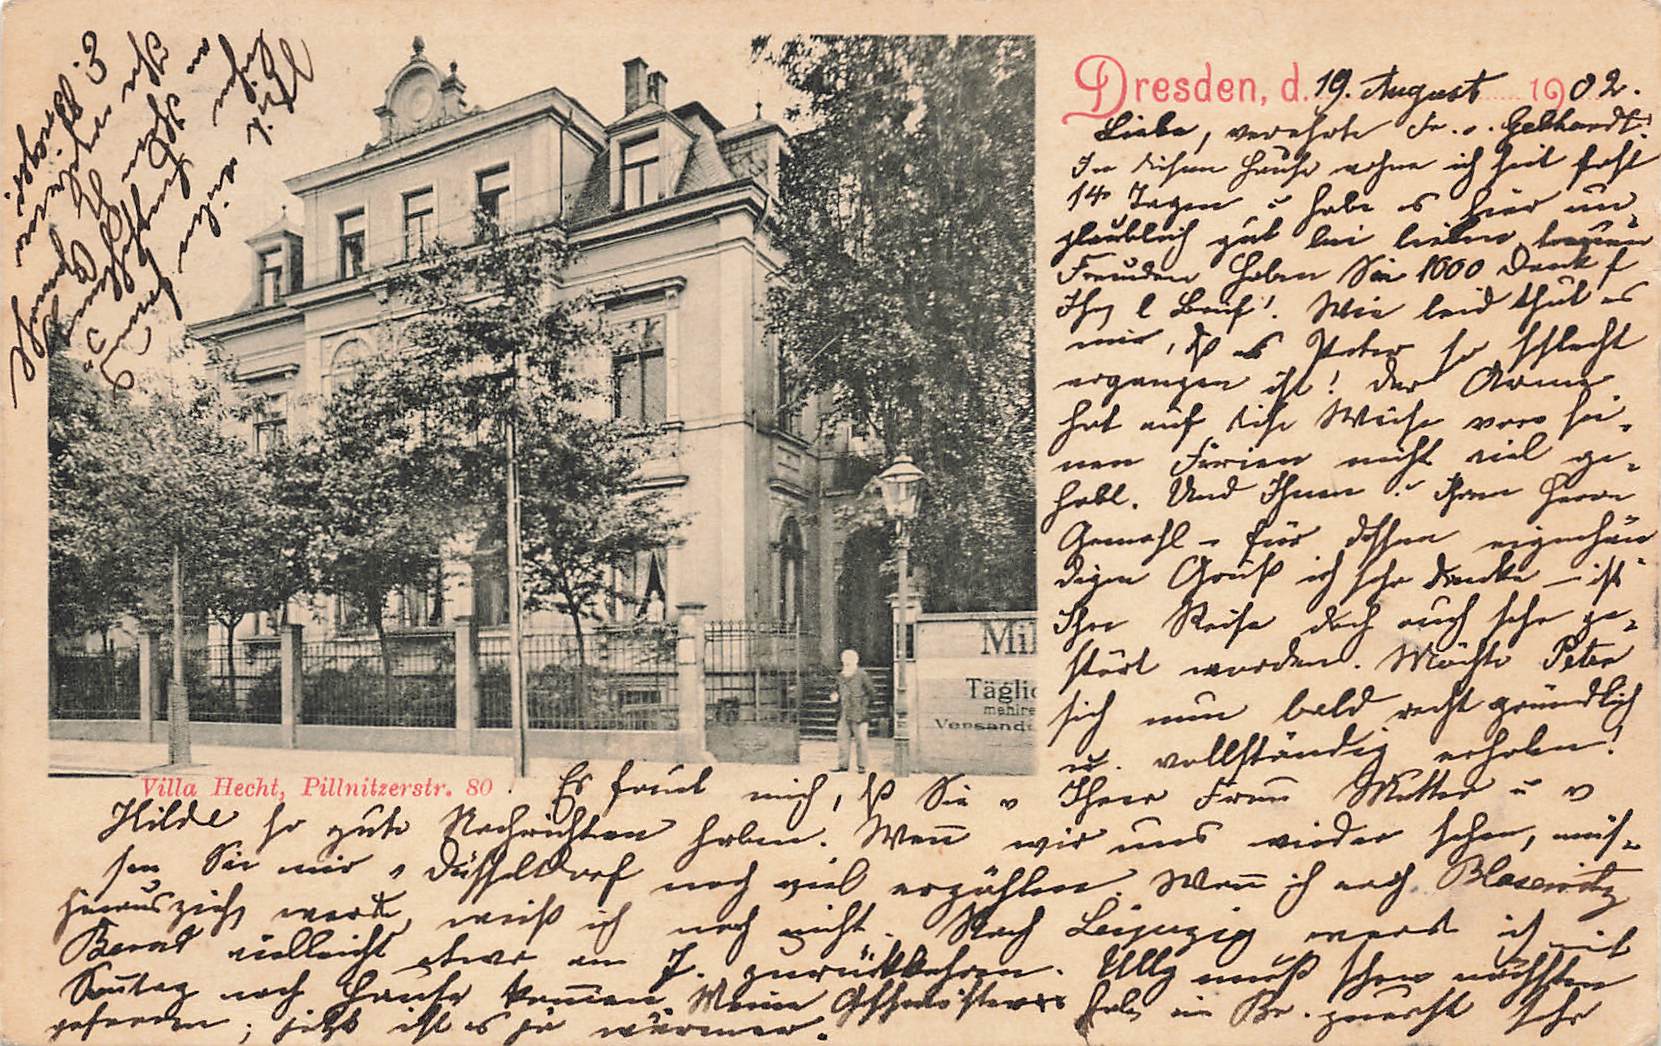 Dresden, d. 19. August 1902.
Liebe, verehrte Fr. v. Gebhardt!
In diesem Hause wohne ich seit fast
14 Tagen u habe es hier un-
glaublich gut bei lieben, treuen
Freunden. Haben Sie 1000 Dank f
Ihr l Brief! Wie leid thut es
mir, dß es Peter so schlecht
ergangen ist! Der Arme
hat auf diese Weise von sei-
nen Ferien nicht viel ge-
habt. Und Ihnen u. Ihrem Herrn
Gemahl – für dessen eigenhän
digen Gruß ich sehr danke – ist
Ihre Reise doch auch sehr ge-
stört worden. Möchte Peter
sich nun bald recht gründlich
u. vollständig erholen!
Mil
Täglic
mehre
Versand
Villa Hecht, Pillnitzerstr. 80
Es freut mich, dß Sie v Ihrer Frau Mutter u v
Hilde so gute Nachrichten haben. Wenn wir uns wieder sehen, müs-
sen Sie mir v Düsseldorf noch viel erzählen. Wann ich nach Blasewitz
herausziehen werde, weiß ich noch nicht. Nach Leipzig werde ich mit
Bernd vielleicht etwa am 7. zurückkehren. Elly muß schon nächsten
Sonntag nach Hause kommen. Meine Geschwister haben in Br. zuerst sehr
gefroren; jetzt ist es ja wärmer.